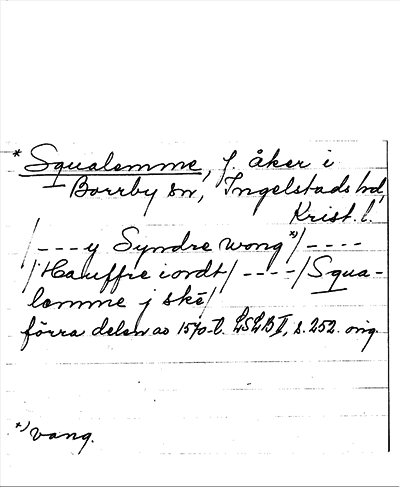 * Squalemme, f. åker i
Borrby sn, Ingelstads hd,
Krist. l.
/---y Syndre wong *)/----
/Hauffre iordt/----/Squa-
lemme j ské/
förra delen av 1570-t. LSLB II, s. 252. orig.
*) vang.